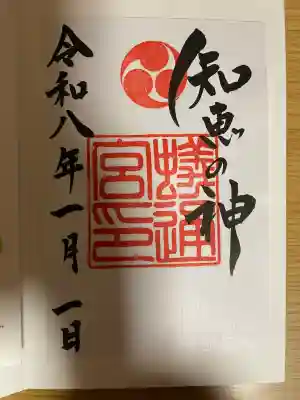 知恵の神
蟻通
宮印
令和八年一月一日